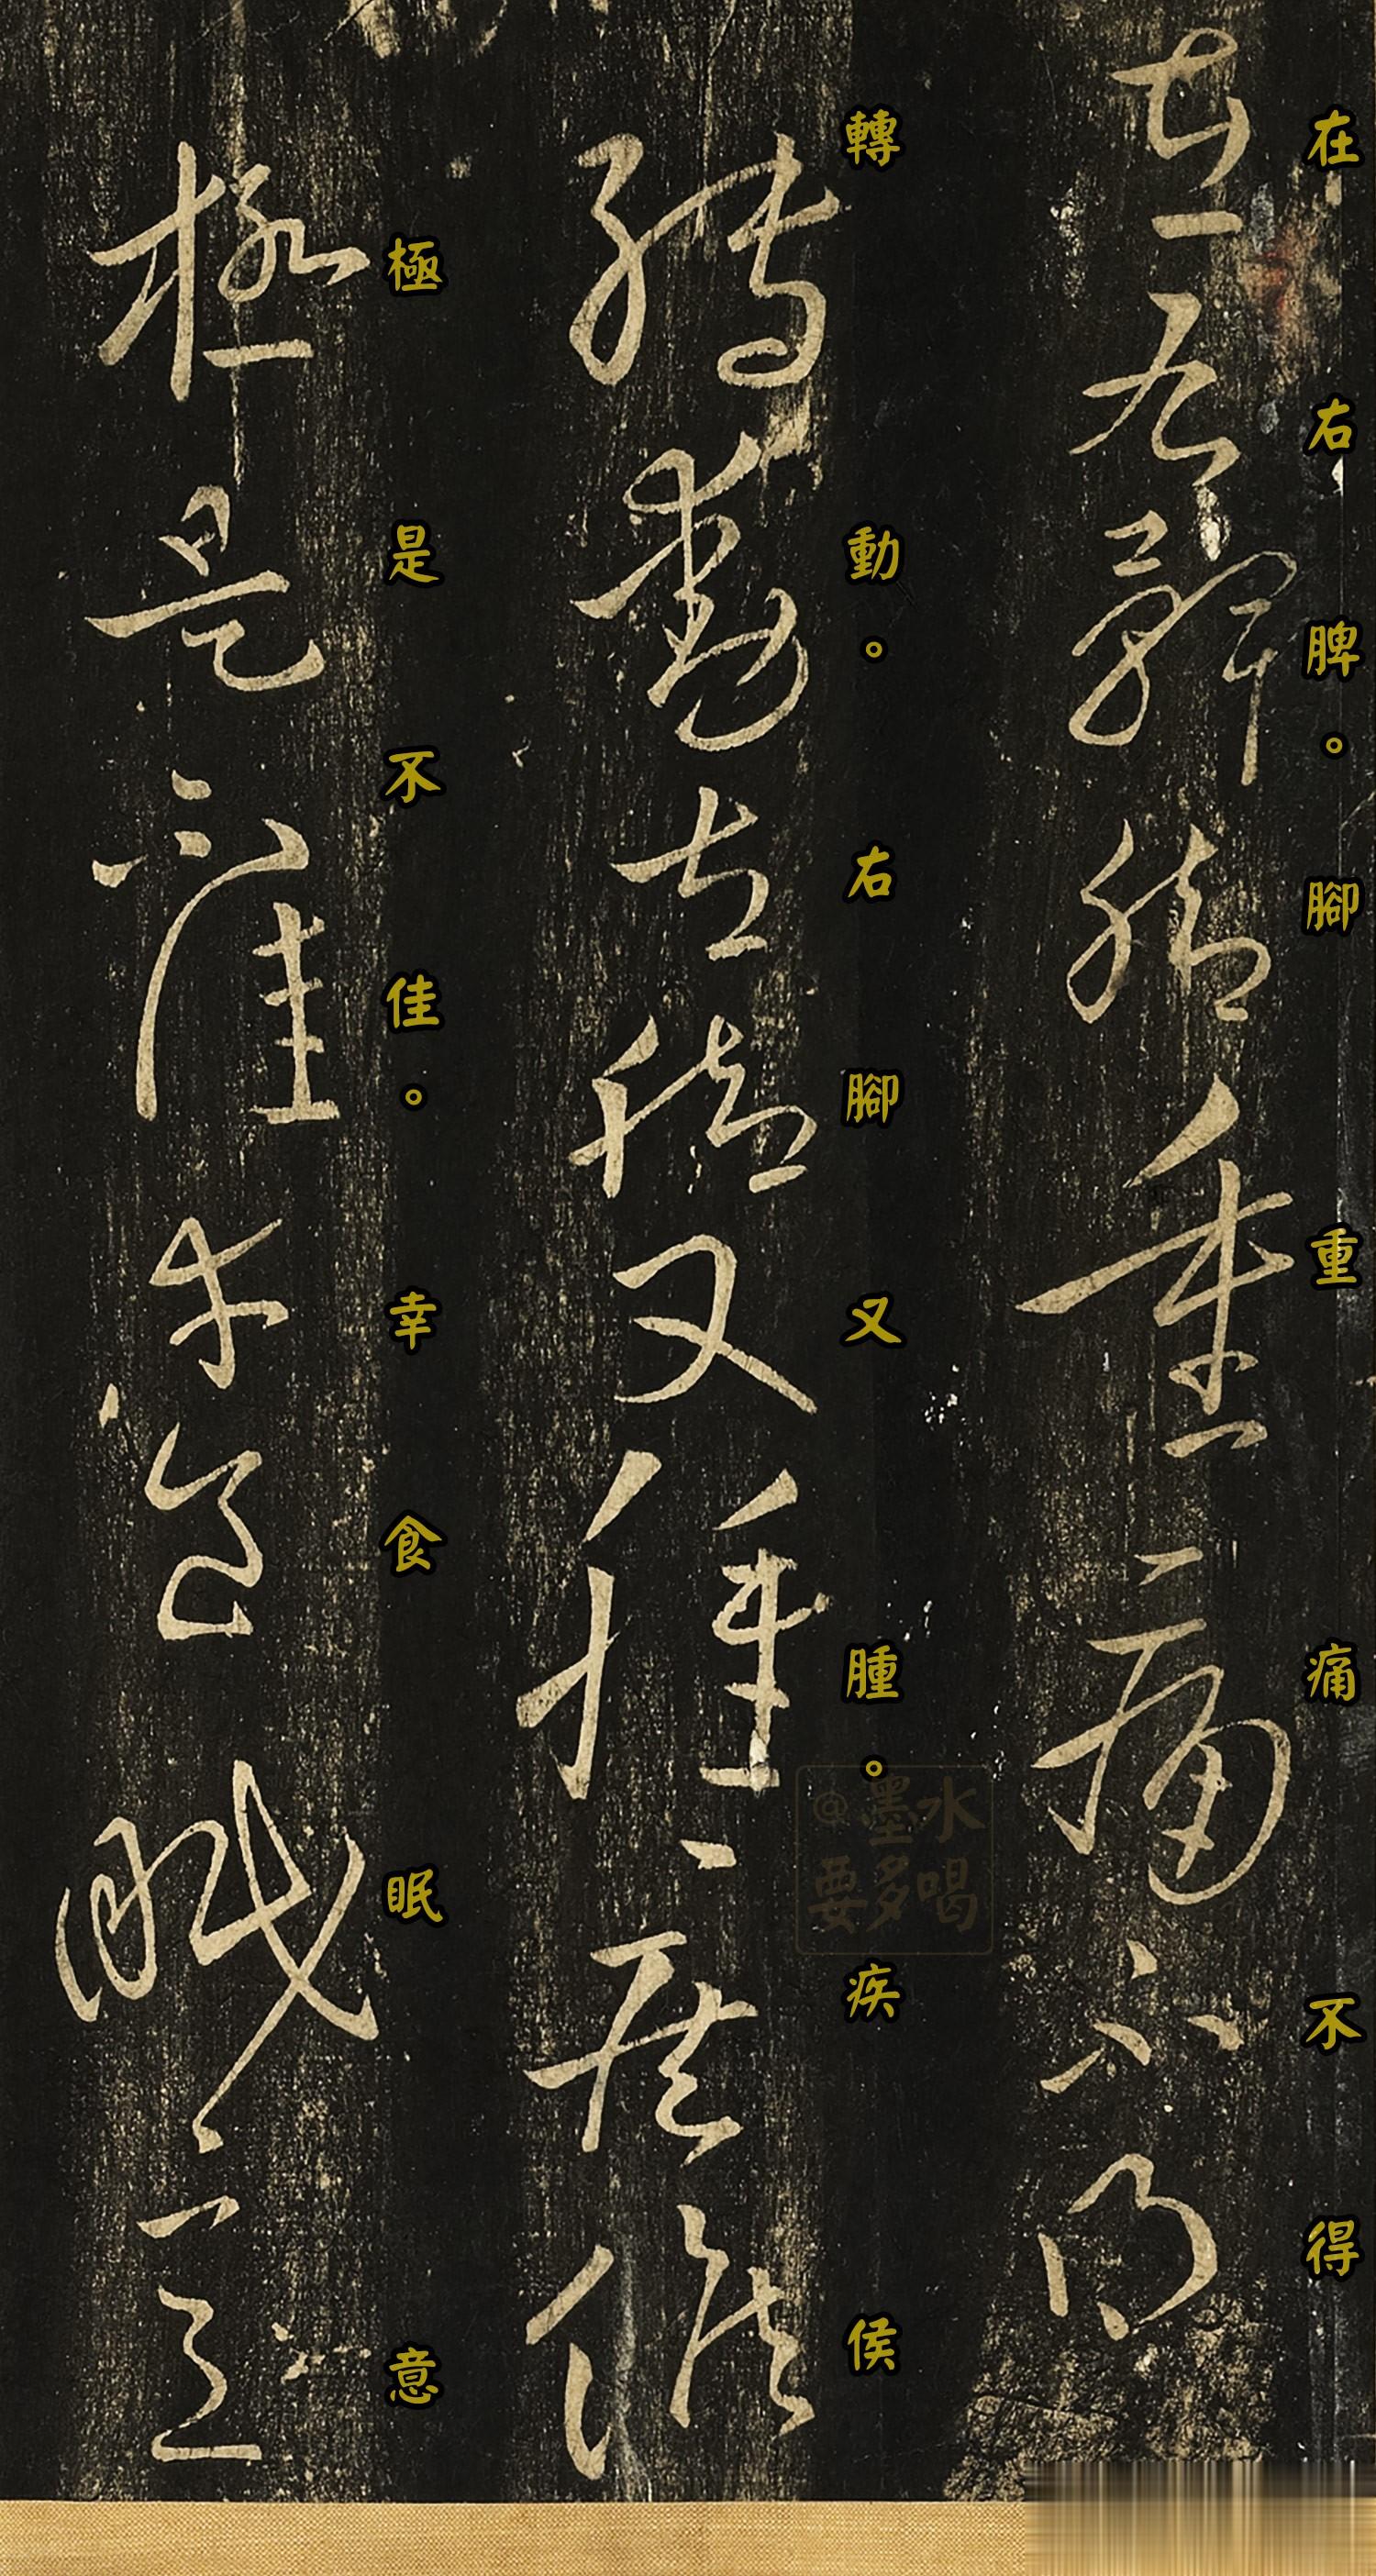 在右脾。腳重痛不得
轉動。右腳又腫。疾侯
極是不佳。幸食眠意
@墨水
要多喝